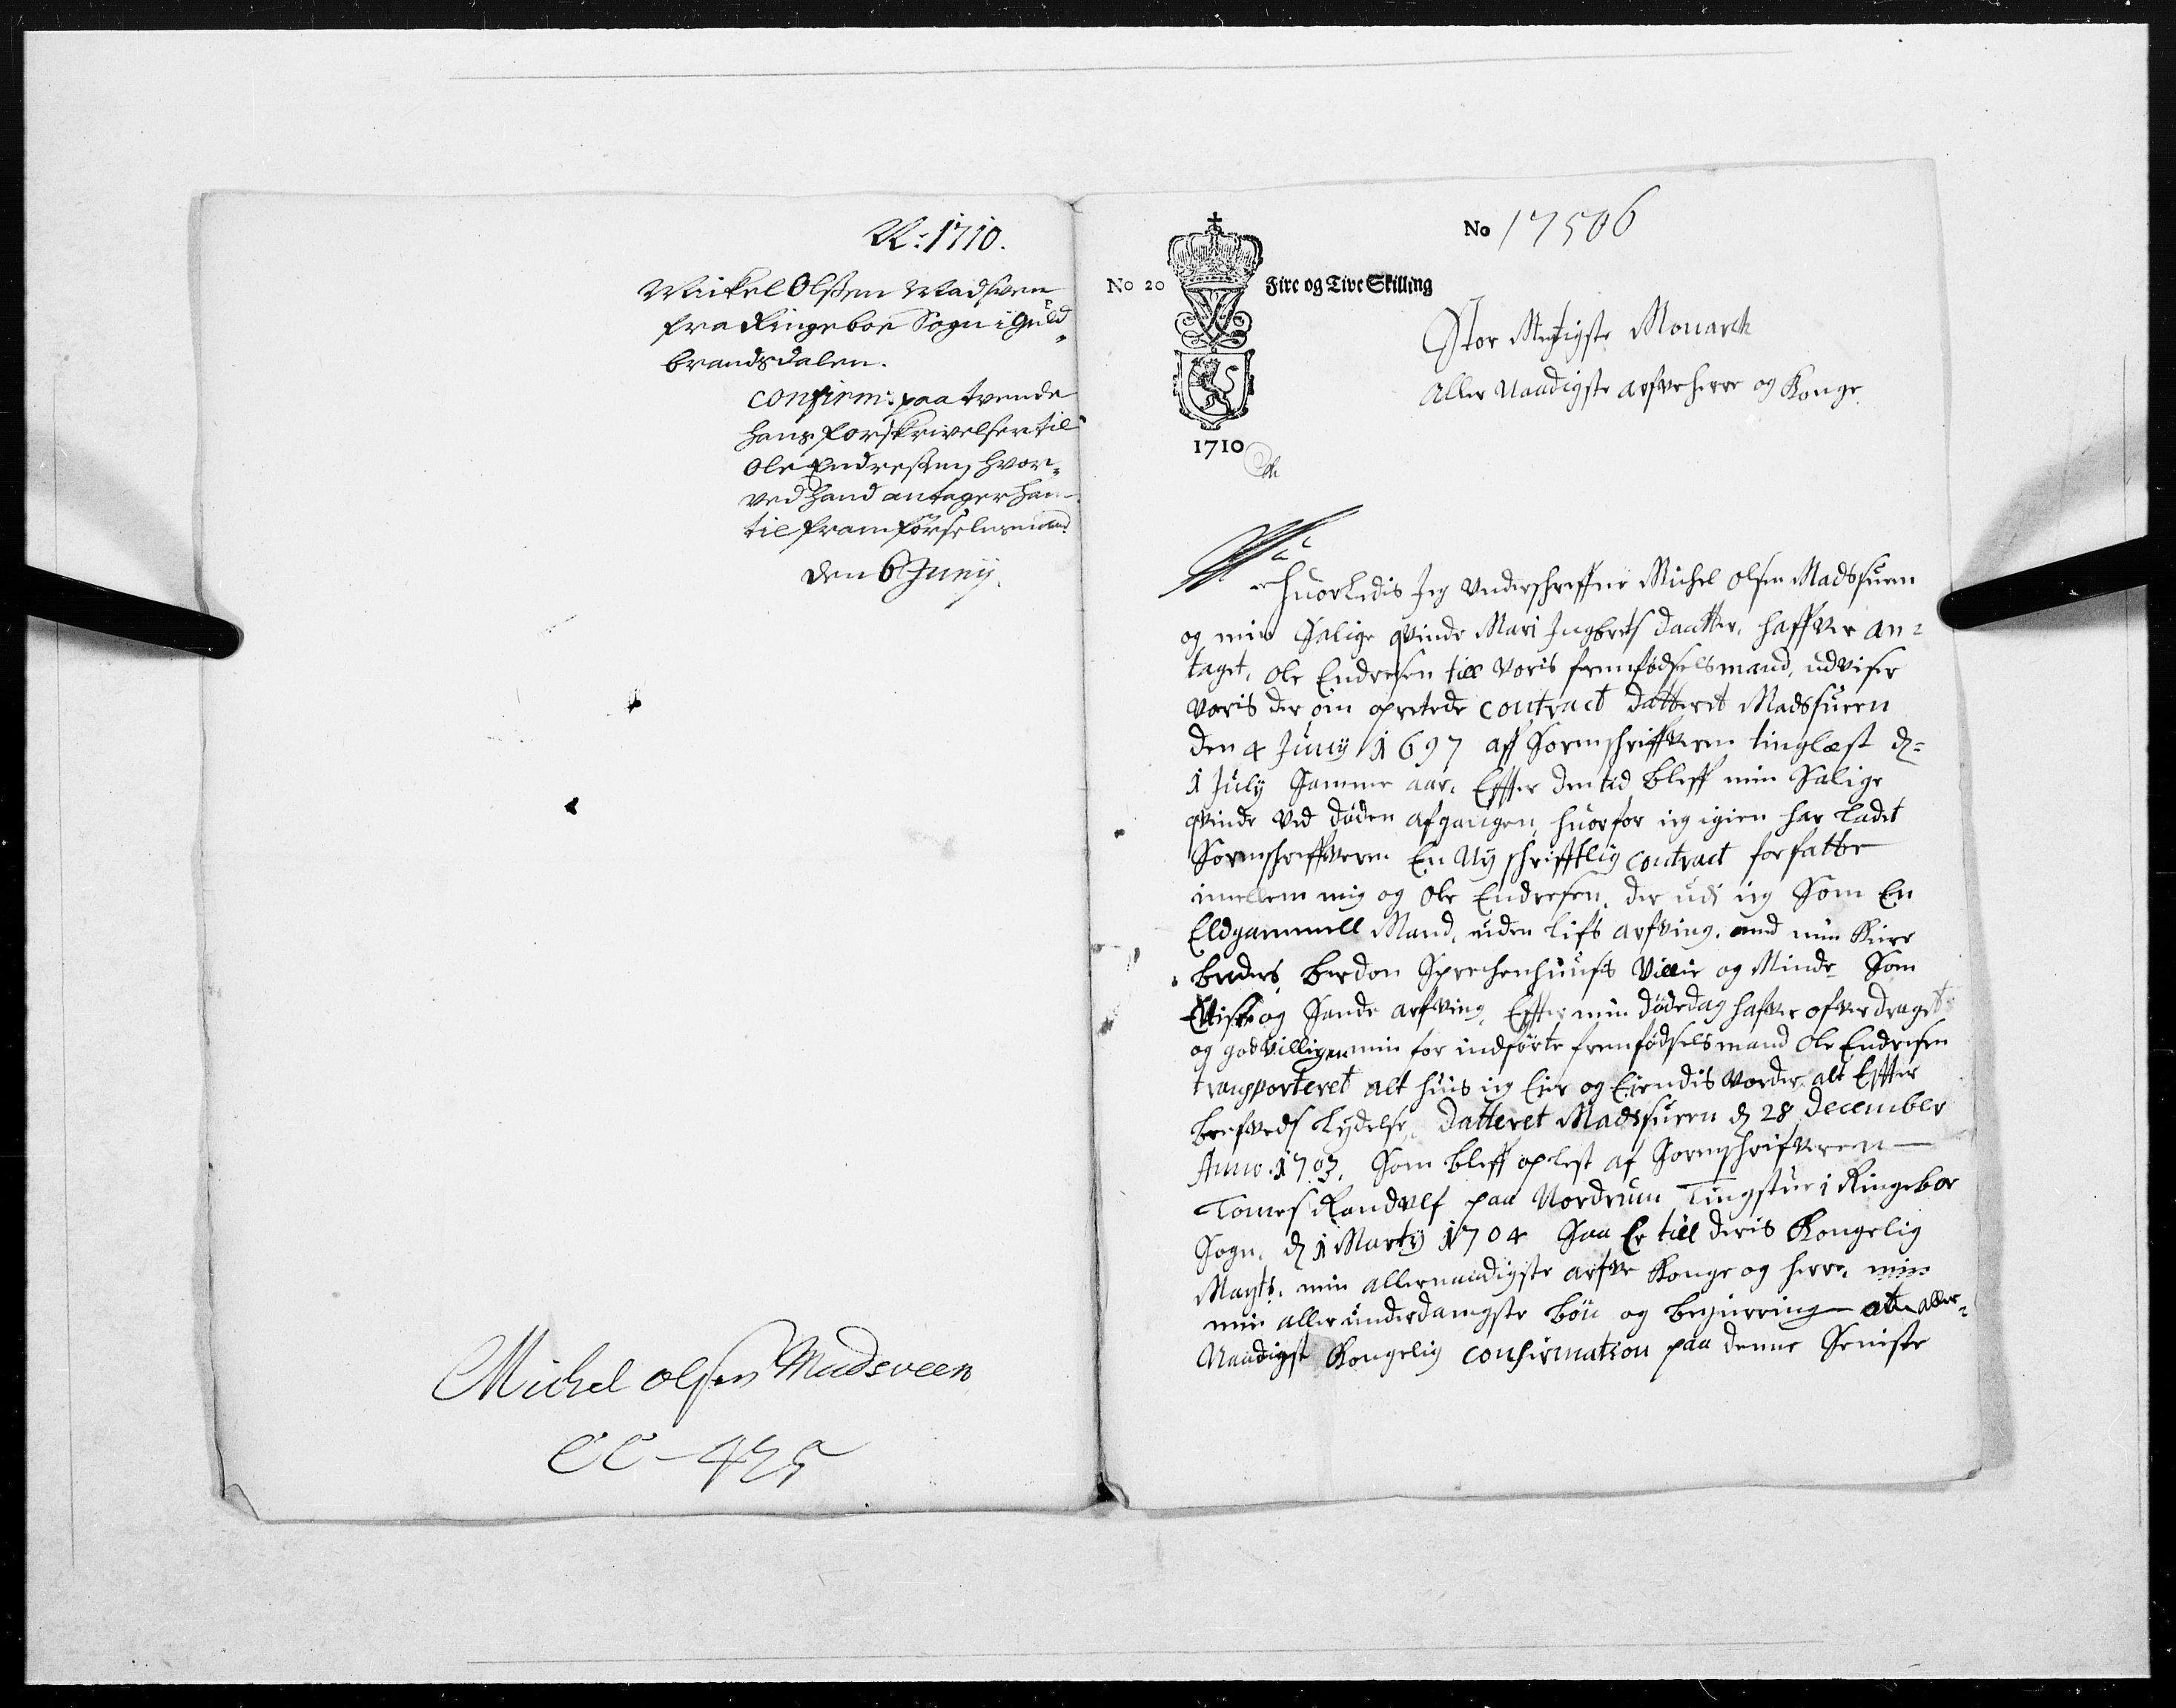 R: 1710.
Mickel Olßen Madsveen
fra Ringeboe Sogn i Guld-
brandsdalen.
Confirm: paa tvende
hans forskrivelser til
Ole Endreßen, hvor-
ved hand antager ham
til framförselsmand
den 6 Junij.
Michel olsen Madsveen
CC-425
No 17506
No 20 Fire og Tive Skilling
1710
Stor Megtigste Monarch
Aller Naadigste arfve herre og Konge
Huorledis Jeg Underschreffne Michel Olsen Madssueen
og min Salige qvinde Mari Ingbrets daatter, haffver an=
taget, Ole Endresen till voris fremfödselsmand, udviser
voris der om opretede Contract datterit Madssueen
den 4 Junij 1697 aff Sorenschriffveren tinglæst d=
1 Julij Samme aar. Effter den tid bleff min Salige
qvinde ved döden afgangen, huorfor ieg igien har ladet
Sorenschriffveren En Nÿ schrifftlig Contract forfatte
imellem mig og Ole Endresen, der udi ieg Som En
Eldgammell Mand, uden lifs arfving. med min Kiere
broders Villie og Minde Som
og Sande arfving, Effter min dödedag hafver ofverdraget
og godvilligen min for indförte fremfödselsmand Ole Endresen
transporteret alt huis ieg Eier og Eiendis vorder, alt Effter
brefveds Lydelse, Datteret Madssueen d 28 December
Anno 1703, Som bleff oplest af Sorenschrifveren
Tomes Randulf paa Nordrum Tingstue i Ringeboe
Sogn. d 1 Martij 1704 Saa Er till deris Kongelig
Mayts. min allernaadigste arfve Konge og herre, min
min aller underdanigste bön og begierring at aller=
Naadigst Kongelig Confirmation paa denne Seniste